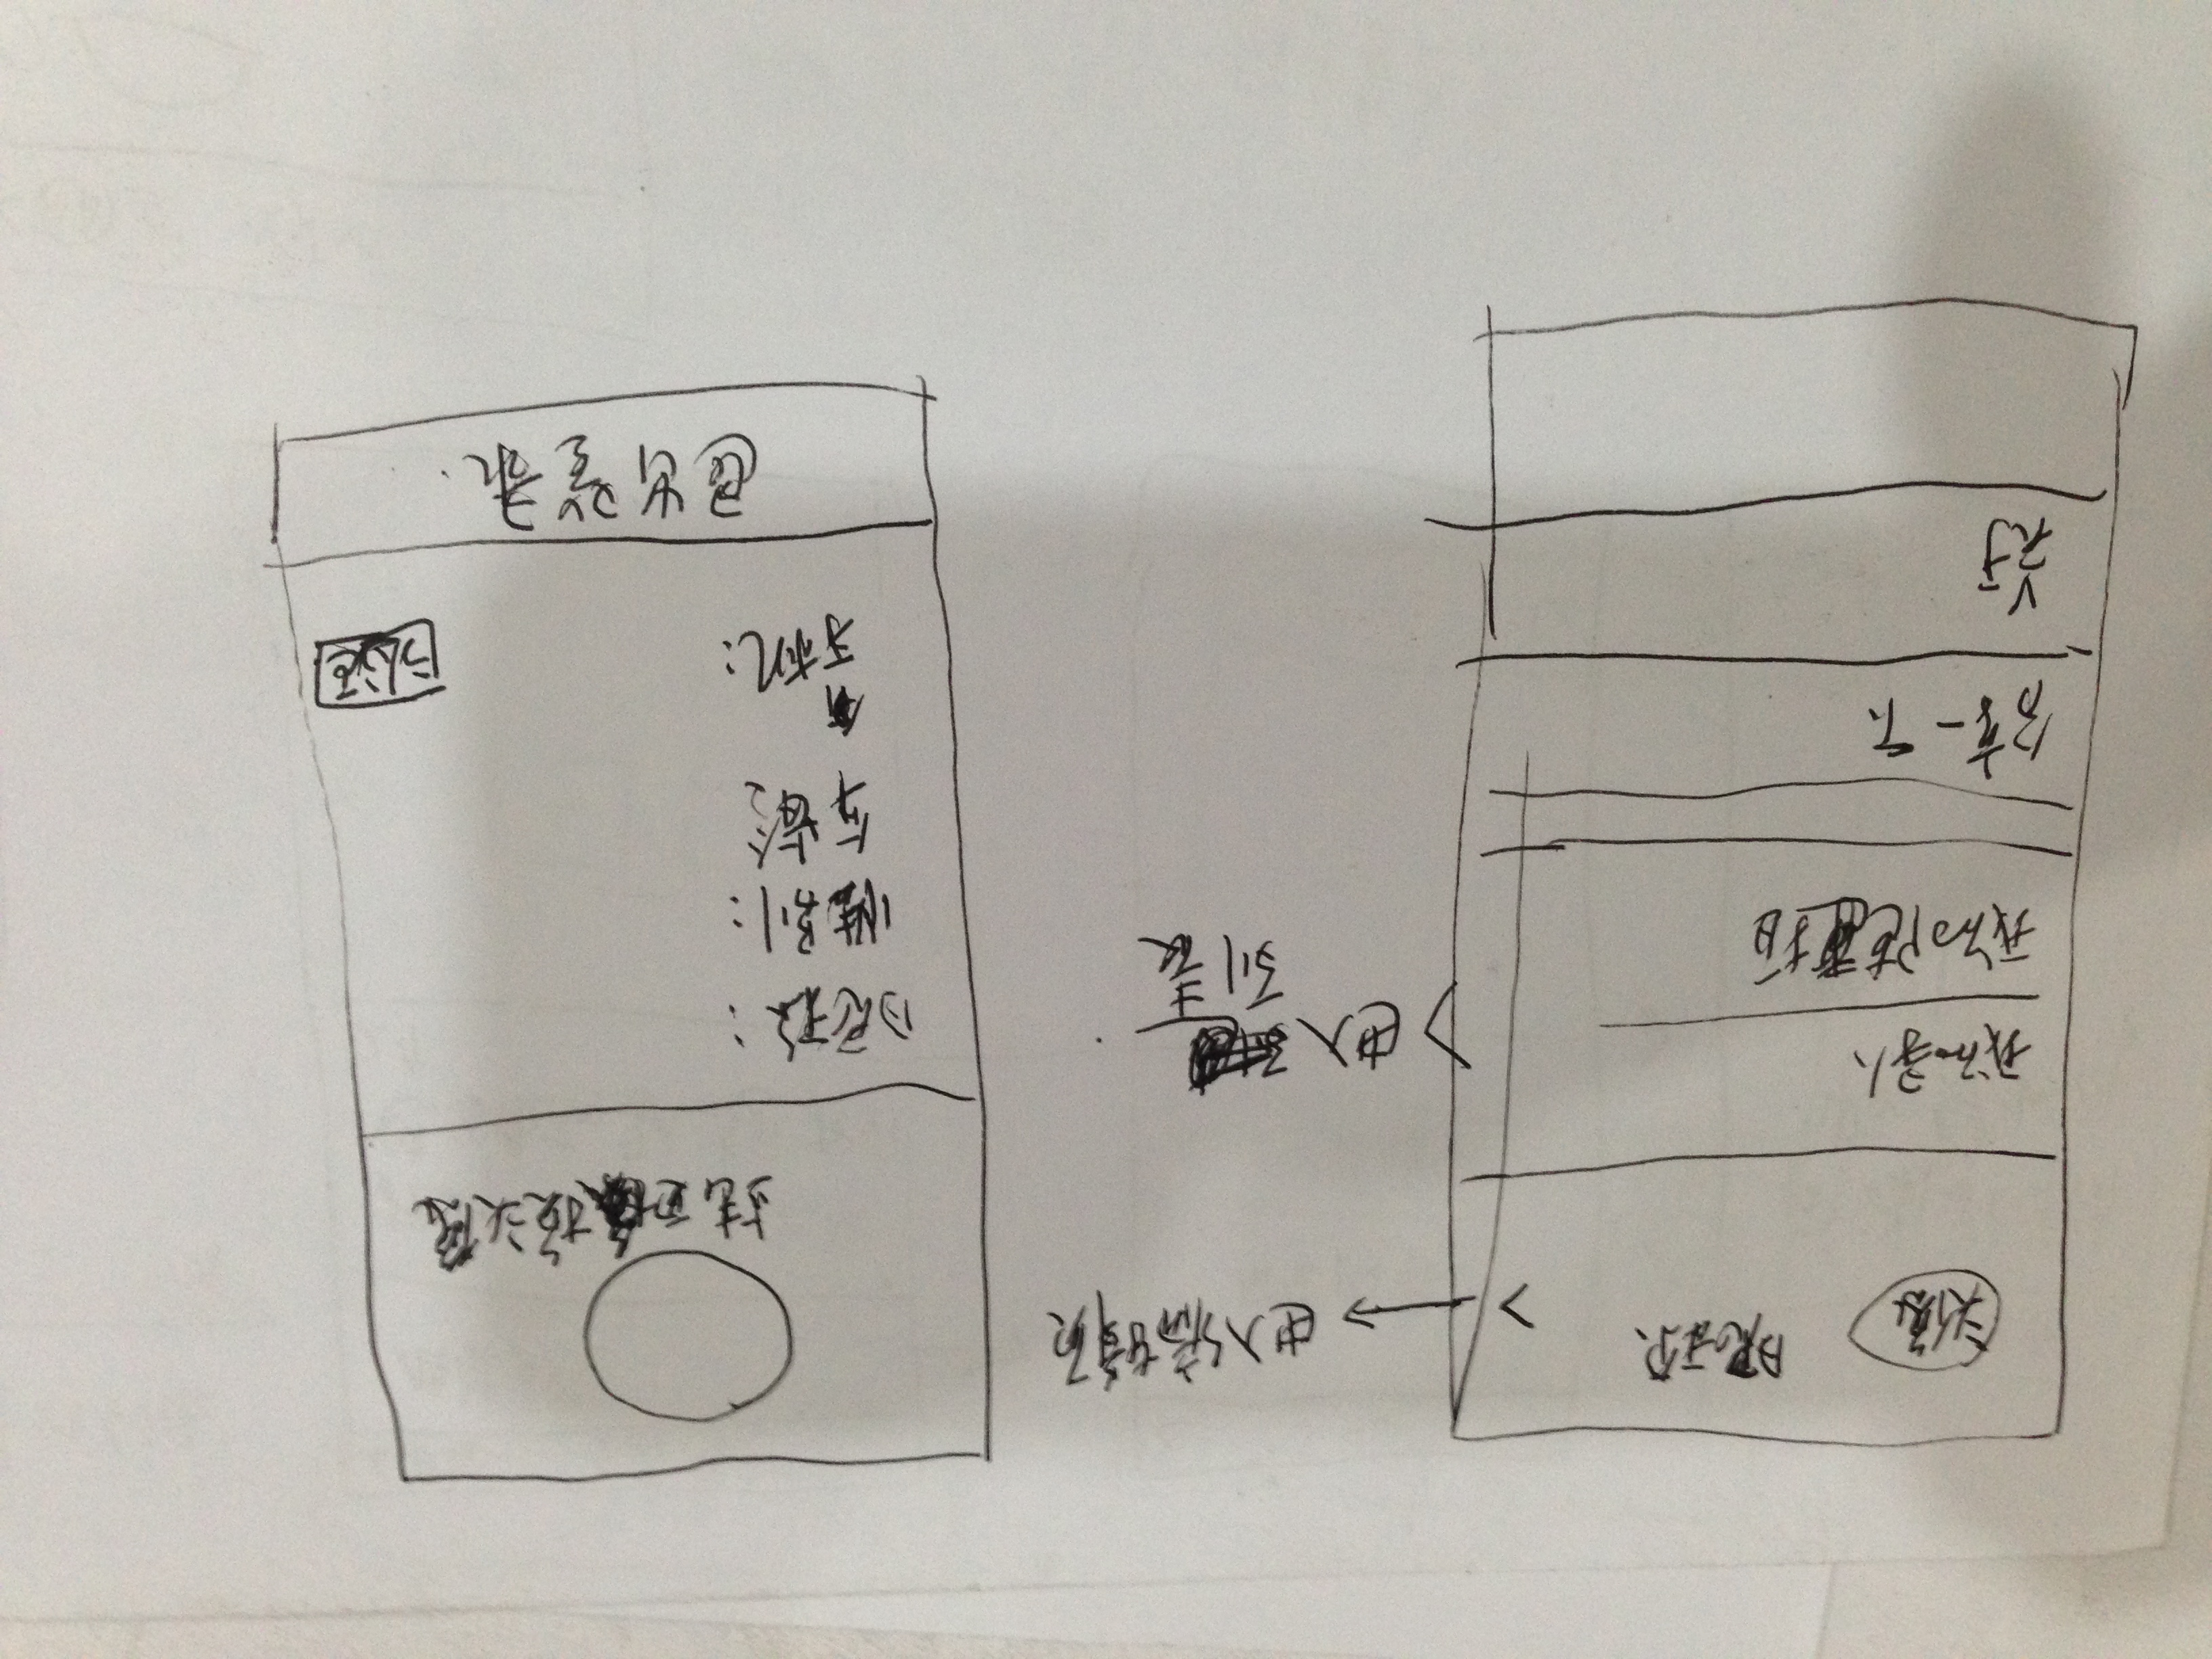 头像
昵称
>
进入编辑页
我的寻人
我的随拍
进入
列表
分享一下
关于
点击更换头像
昵称：
性别：
年龄
手机：
认证
退出登录.